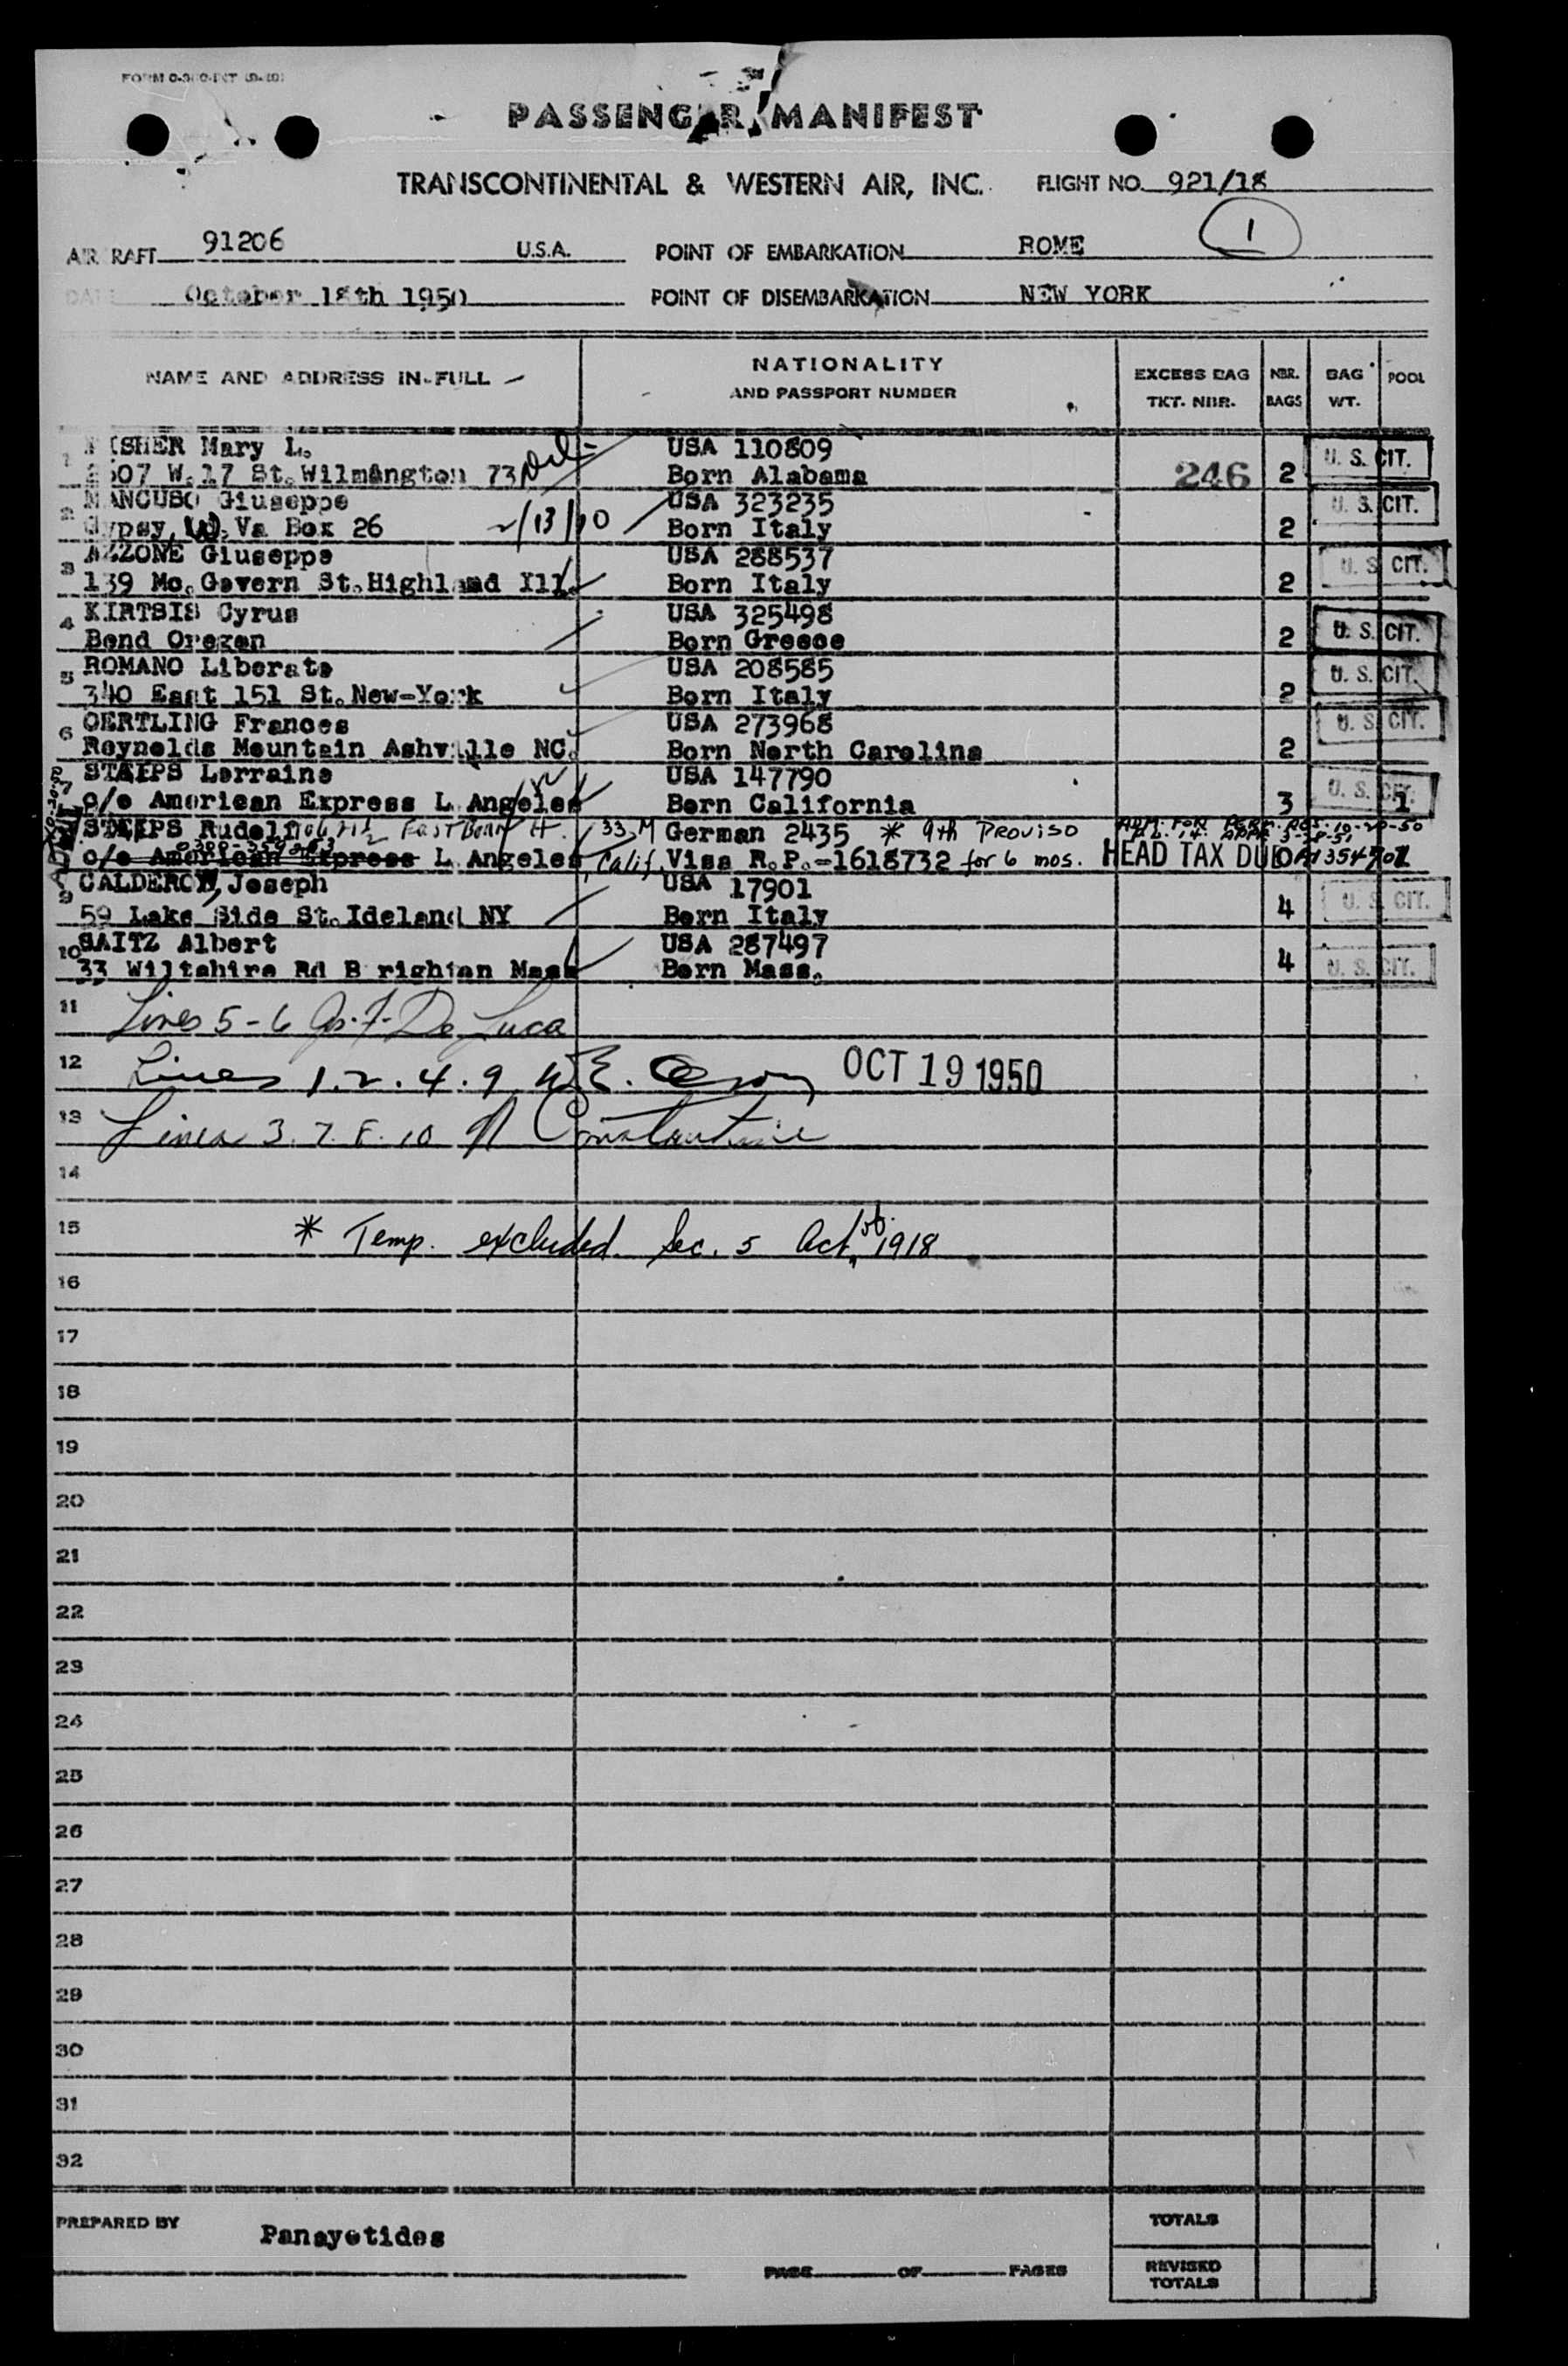 PASSENGER MANIFEST
TRANSCONTINENTAL & WESTERN AIR, INC. FLIGHT NO. 921/18
AIR RAFT 91206 U.S.A. POINT OF EMBARKATION ROME 1
DATE October 18th 1950 POINT OF DISEMBARKATION NEW YORK
NAME AND ADDRESS IN FULL NATIONALITY AND PASSPORT NUMBER EXCESS BAG TKT. NBR. NBR. BAGS BAG WT. POOL
1 FISHER Mary L. USA 110809
W. 17 St. Wilmington 73 Del. Born Alabama 246 2 U. S. CIT.
2 MANCUSO Giuseppe USA 323235
Gypsy, W. Va Box 26 Born Italy 2 U. S. CIT.
3 AZZONE Giuseppe USA 288537
139 Mc. Govern St. Highland Ill. Born Italy 2 U. S. CIT.
4 KIRTSIS Cyrus USA 325498
Bend Oregon Born Greece 2 U. S. CIT.
5 ROMANO Liberato USA 208585
340 East 151 St. New-York Born Italy 2 U. S. CIT.
6 OERTLING Frances USA 273968
Reynolds Mountain Ashville NC. Born North Carolina 2 U. S. CIT.
7 Lorraine USA 147790
c/o American Express L. Angeles Born California 3 U. S. CIT. 1
Rudolf 33 M German 2435 * 9th Proviso
c/o American Express L. Angeles, Calif. Visa R.P.-1618732 for 6 mos. HEAD TAX DUE
9 CALDERON, Joseph USA 17901
59 Lake Side St. Ideland NY Born Italy 4 U. S. CIT.
10 SAITZ Albert USA 287497
33 Wiltshire Rd B righton Mass Born Mass. 4 U. S. CIT.
11 Lines 5-6 De Luca
12 Lines 1. 2. 4. 9 OCT 19 1950
13 Lines 3. 7. 8. 10 N Constantine
14
15 * Temp. excluded. Sec. 5 Act, 1918
16
17
18
19
20
21
22
23
24
25
26
27
28
29
30
31
32
PREPARED BY Panayotides TOTALS
PAGE OF PAGES REVISED TOTALS